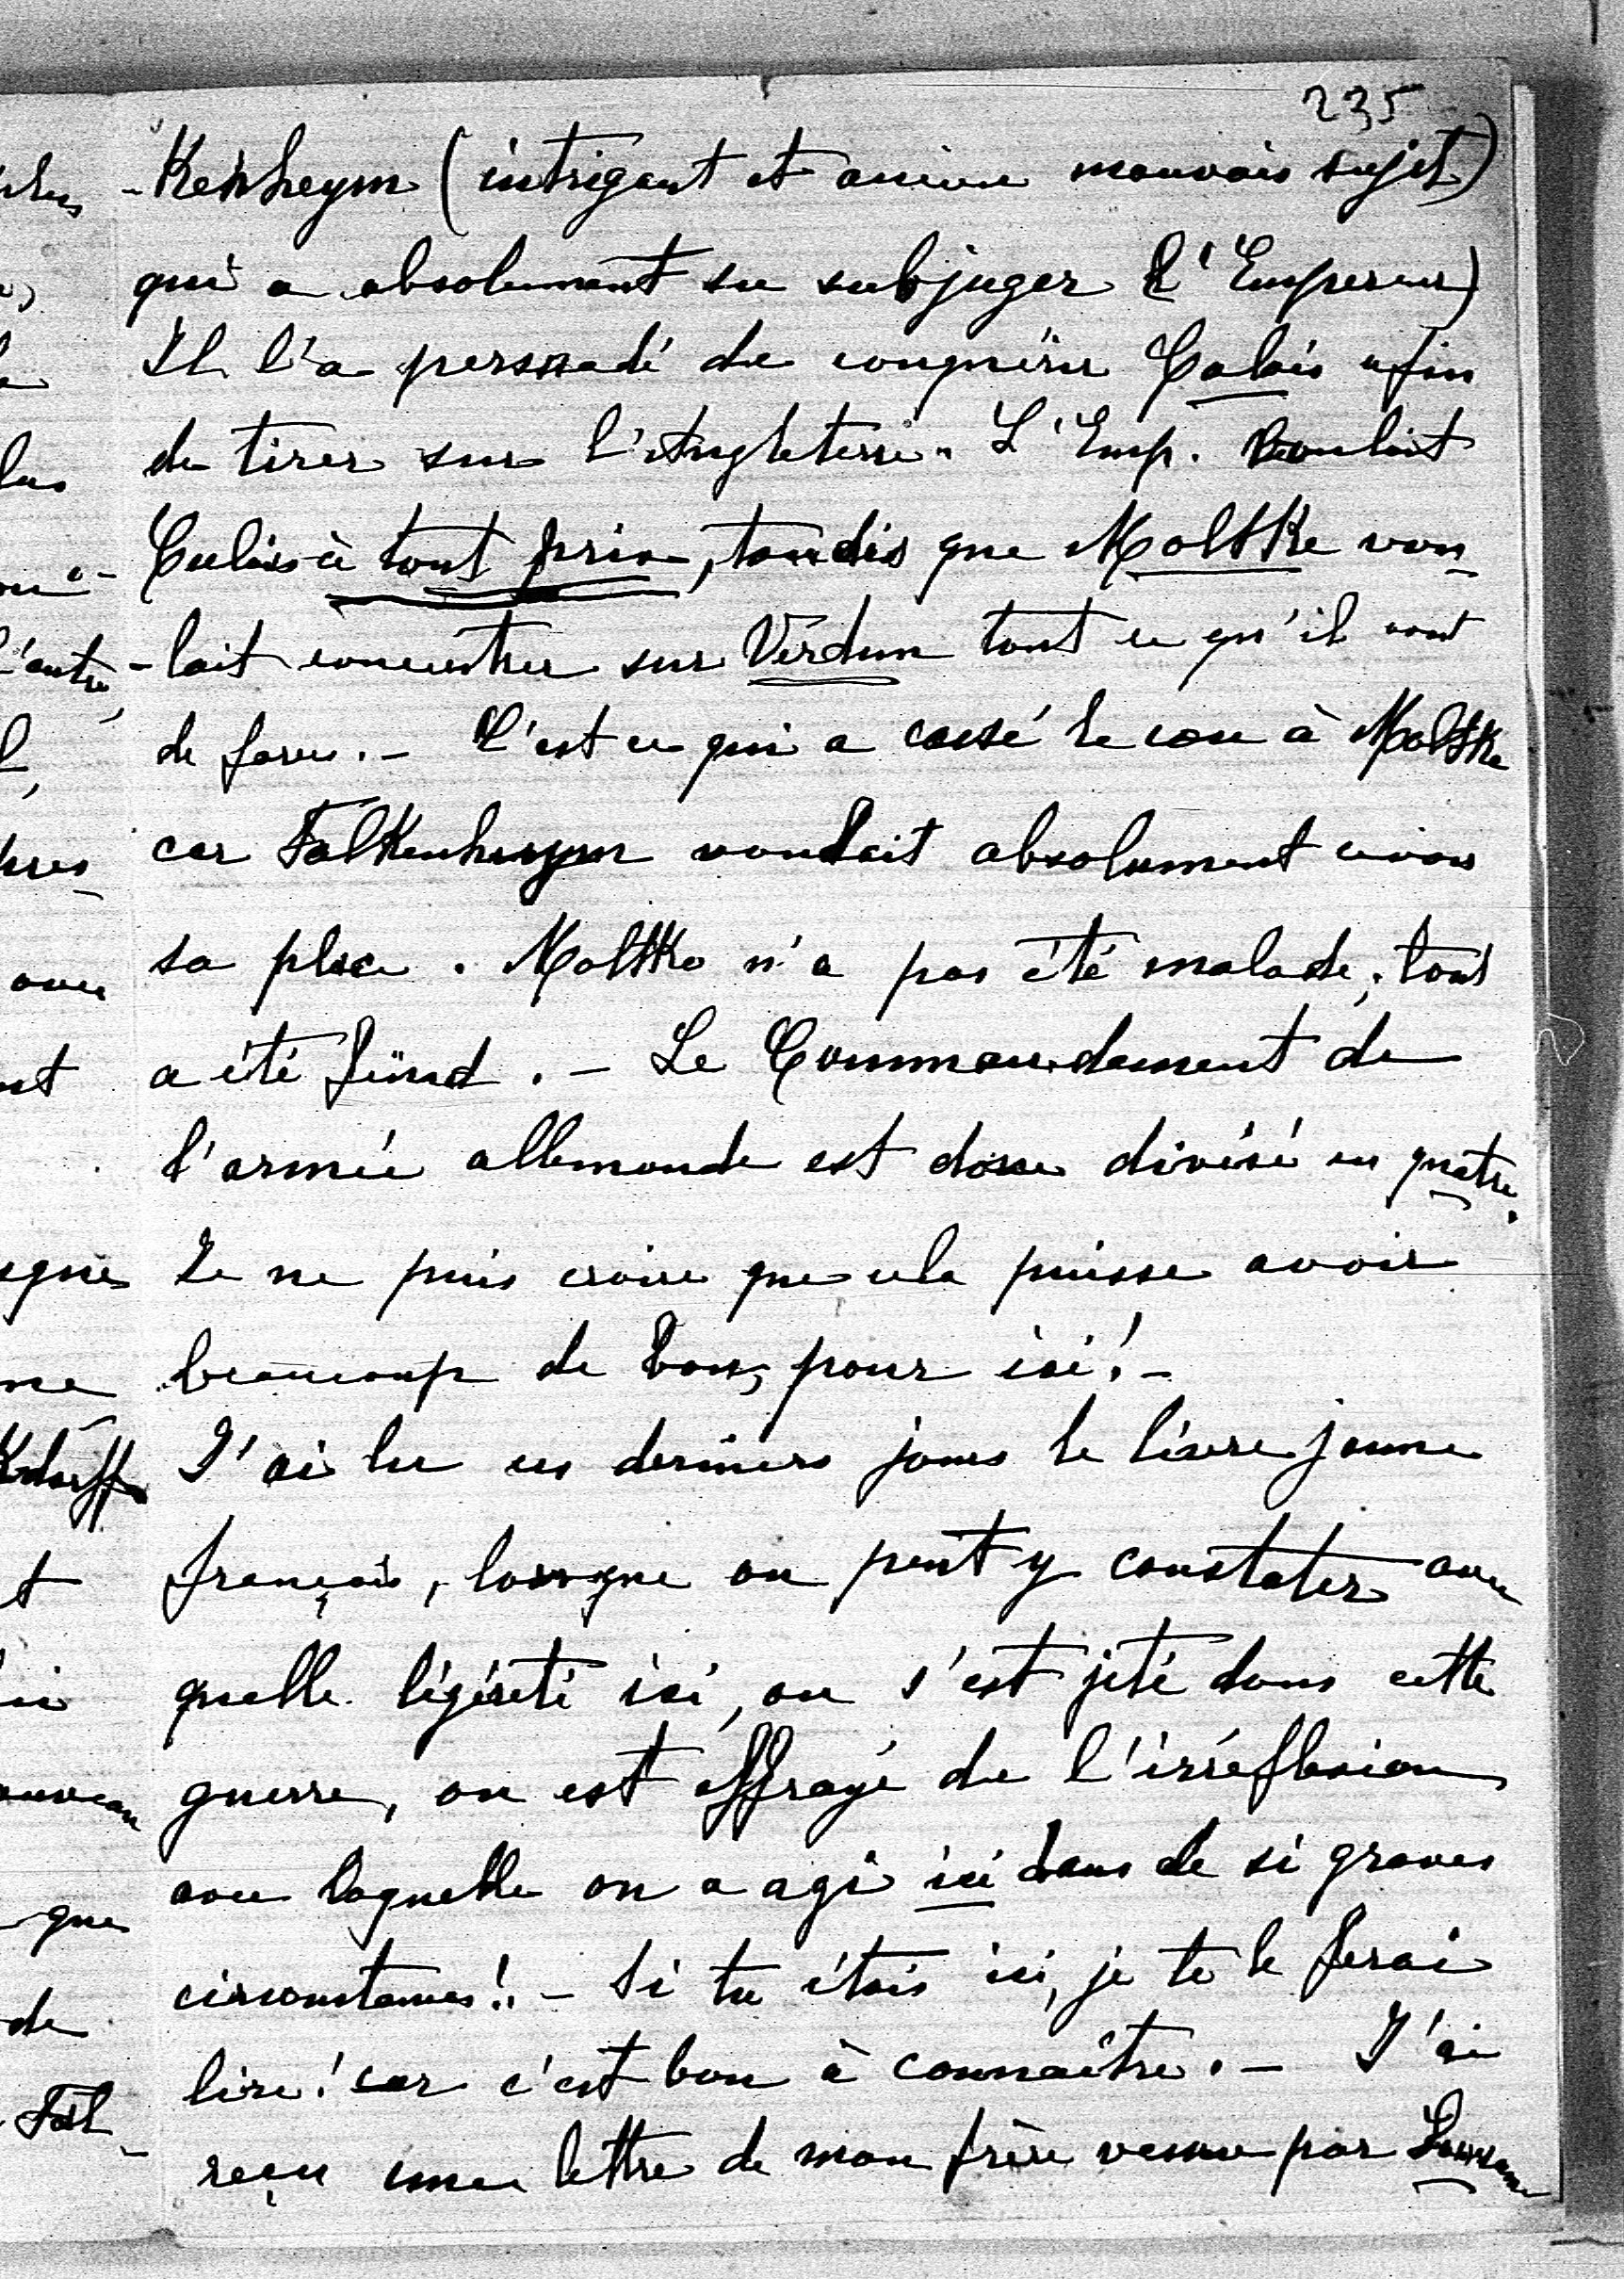 235
-Kenheym (intrigant et ancien mauvais sujet)
qui a absolument su subjuger l'Empereur)
Il l'a persuadé de conquérir Calais afin
de tirer sur l'Angleterre. L'Emp. voulait
Calais à tout prix, tandis que Moltke vou-
-lait concentrer sur Verdun tout ce qu'il
de forces. - C'est ce qui a cassé le cou à Moltke
car Falkenheym voulait absolument avoir
sa place. Moltke n'a pas été malade, tout
a été feind. - Le Commandement de
l'armée allemande est donc divisé en quatre.
Je ne puis croire que cela puisse avoir
beaucoup de bon, pour ici! -
J'ai lu ces derniers jours le livre jaune
français, lorsque on peut y constater avec
quelle légéreté ici, on s'est jeté dans cette
guerre, on est effrayé de l'irréflexion
avec laquelle on a agi ici dans de si graves
circonstances!! - Si tu étais ici, je te le ferai
lire! car c'est bon à connaître. - J'ai
reçu une lettre de mon frère venue par Lausanne